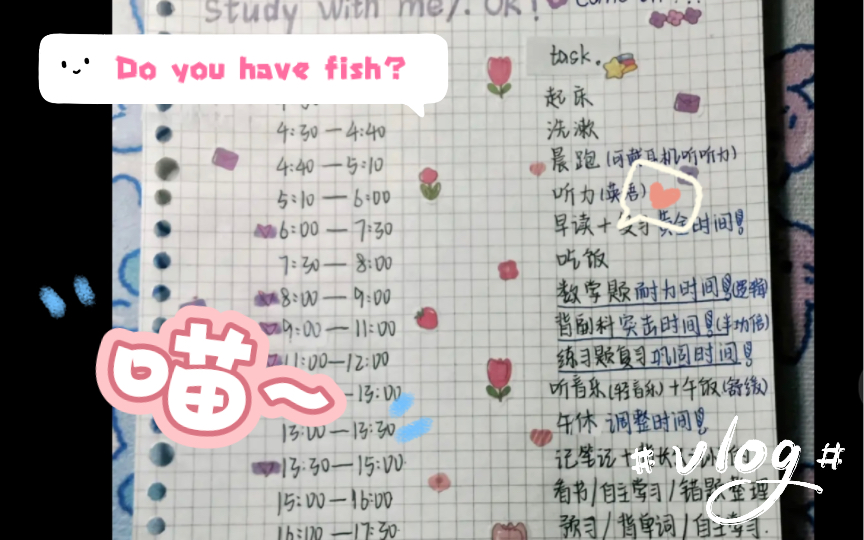 Study with me/. OK!
Come on!!!
Do you have fish?
task.
起床
4:30—4:40 洗漱
4:40—5:10 晨跑(可带耳机听听力)
5:10—6:00 听力(英语)
6:00—7:30 早读+复习 黄金时间!
7:30—8:00 吃饭
8:00—9:00 数学题耐力时间!(逻辑
9:00—11:00 背副科突击时间!(半功倍)
11:00—12:00 练习题复习巩固时间!
—13:00 听音乐(轻音乐)+午饭(舒缓)
13:00—13:30 午休 调整时间!
13:30—15:00 记笔记+背
15:00—16:00 看书/自主学习/错题整理
16:00—17:30 预习/背单词/自主学习.
喵~
#vlog#